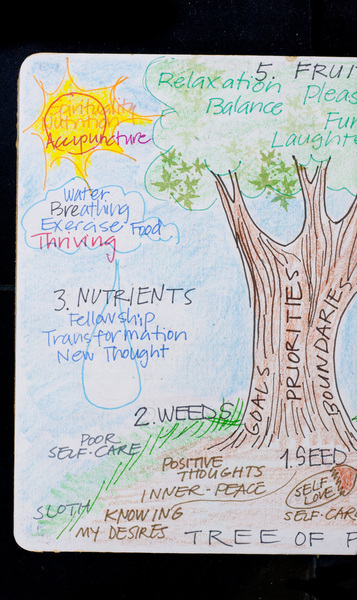 5. FRUI
Relaxation
Pleas
Balance
Fun
Laughte
Spirituality
Nutrition
Acupuncture
Water
Breathing
Exercise Food
Thriving
3. NUTRIENTS
Fellowship
Transformation
New Thought
GOALS
PRIORITIES
BOUNDARIES
2. WEEDS
POOR
SELF-CARE
SLOTH
1. SEED
SELF
LOVE
SELF-CAR
POSITIVE
THOUGHTS
INNER-PEACE
KNOWING
MY DESIRES
TREE OF F